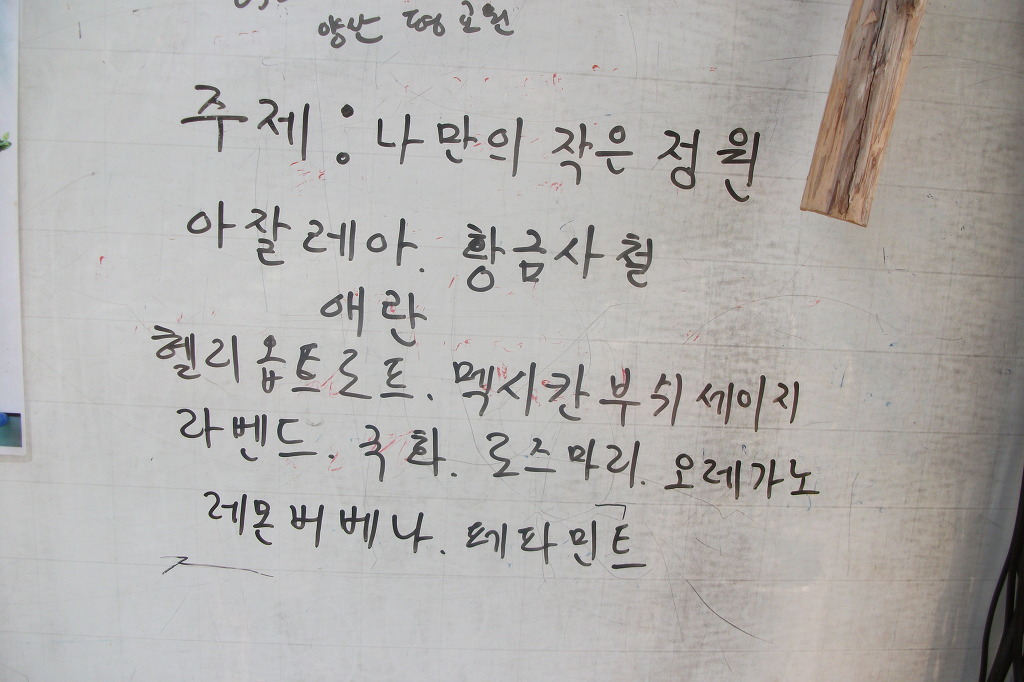 주제 : 나만의 작은 정원
아잘레아. 황금사철
애란
헬리옵트로트. 멕시칸부쉬세이지
라벤드. 국화. 로즈마리. 오레가노
레몬버베나. 페파민트